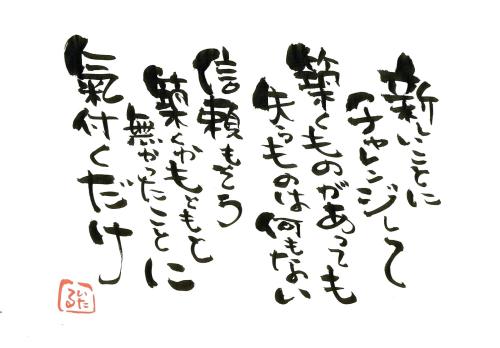 新しいことに
チャレンジして
築くものがあっても
失うものは何もない
信頼もそう
築くかもともと
無かったことに
氣付くだけ
いた
る